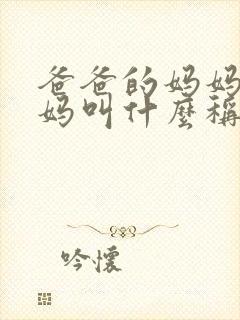 爸爸的妈妈
妈叫什麼稱
吟懷